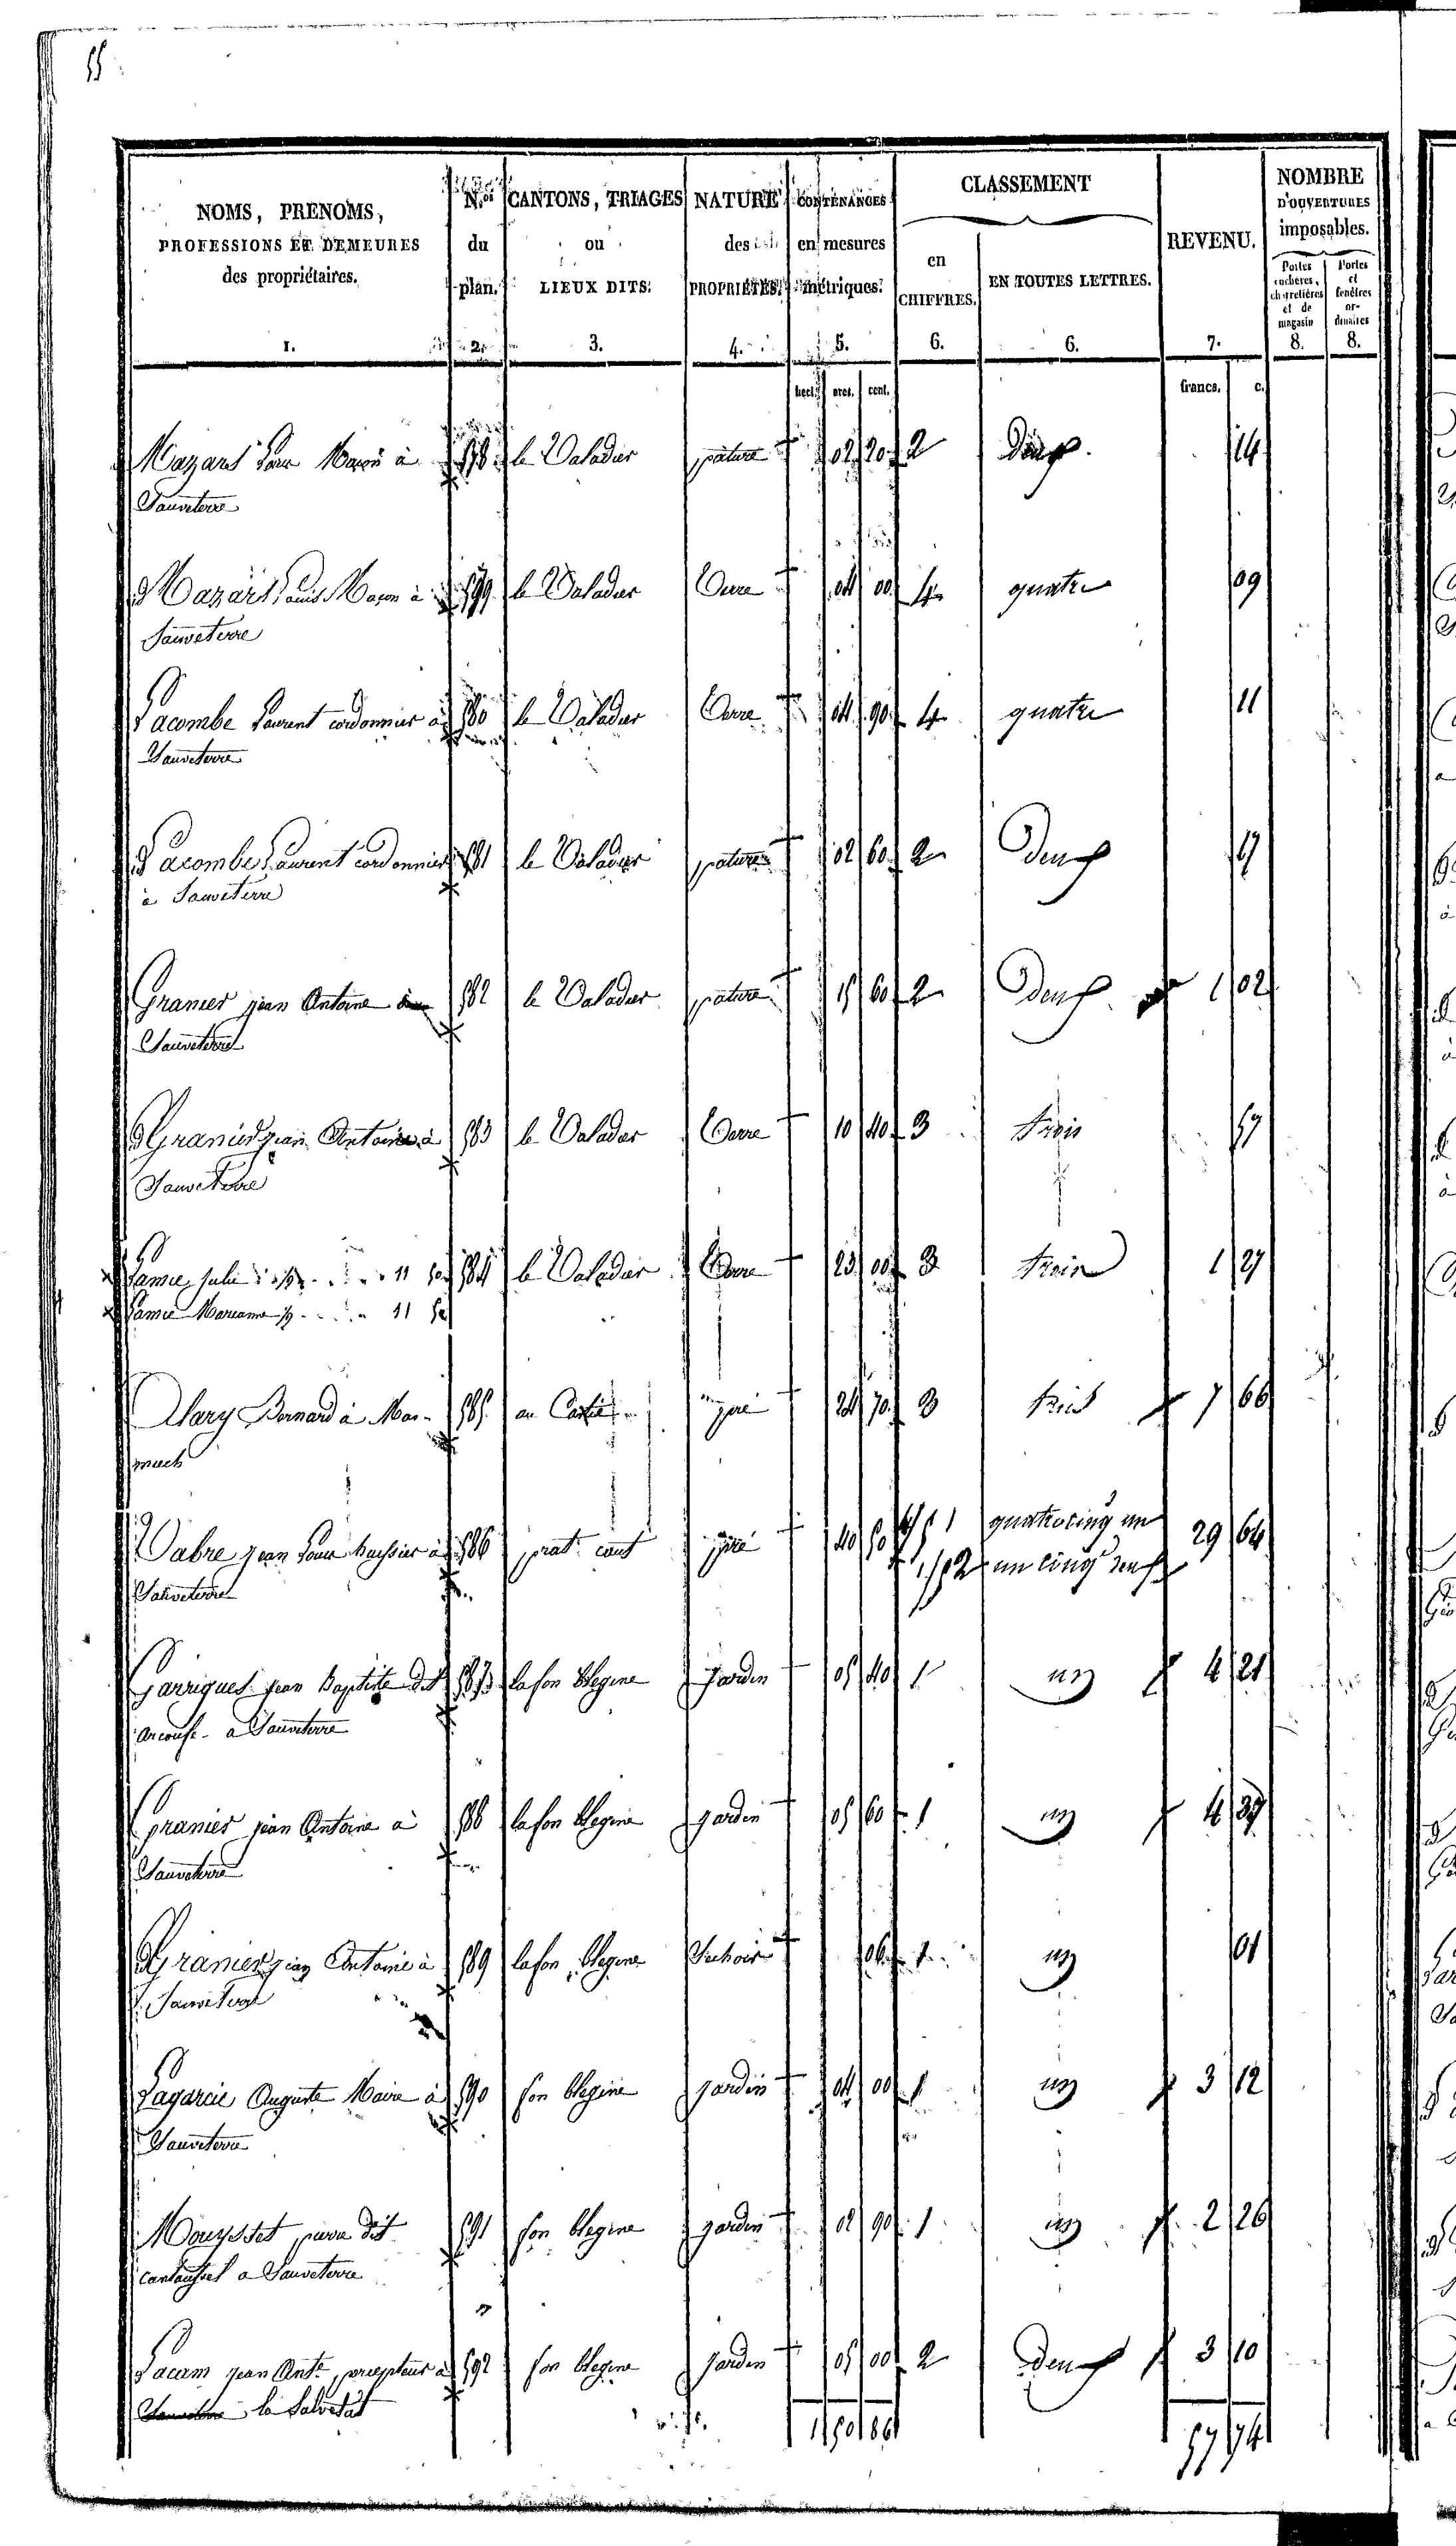 55
NOMS, PRENOMS, PROFESSIONS ET DEMEURES des propriétaires. 1.
N.os du plan. 2.
CANTONS, TRIAGES ou LIEUX DITS. 3.
NATURE des PROPRIÉTÉS. 4.
CONTENANCES en mesures métriques. 5.
CLASSEMENT
en CHIFFRES. 6.
EN TOUTES LETTRES. 6.
REVENU. 7.
NOMBRE D'OUVERTURES imposables.
Portes cochères, charretières et de magasin 8.
Portes et fenêtres ordinaires 8.
hect. ares. cent. francs. c.
Mazars Maçon à 578 le Valadier pature 02 20 2 Deux 14
Sauveterre
Mazars Louis Maçon à 579 le Valadier Terre 04 00 4 quatre 09
Sauveterre
Lacombe Laurent cordonnier à 580 le Valadier Terre 04 90 4 quatre 11
Sauveterre
Lacombe Laurent cordonnier 581 le Valadier pature 02 60 2 Deux 17
à Sauveterre
Granier jean Antoine à 582 le Valadier pature 15 60 2 Deux 1 02
Sauveterre
Granier jean Antoine à 583 le Valadier Terre 10 40 3 trois 57
Sauveterre
Julie 1/2 11 50 584 le Valadier Terre 23 00 3 trois 1 27
Marianne 1/2 11 50
Alary Bernard à Mar- 585 au pré 24 70 3 trois 7 66
much
Vabre jean huissier à 586 prat pré 40 50 4/5 1 quatre cinq un 29 64
Sauveterre 1/5 2 un cinq deux
Garrigues jean Baptiste dit 587 lafon blegine jardin 05 40 1 un 4 21
a Sauveterre
Granier jean Antoine à 588 lafon blegine jardin 05 60 1 un 4 37
Sauveterre
Granier jean Antoine à 589 lafon blegine Sechoir 06 1 un 01
Sauveterre
Lagarcie Auguste Maire à 590 fon blegine jardin 04 00 1 un 3 12
Sauveterre
Mouysset dit 591 fon blegine jardin 02 90 1 un 2 26
a Sauveterre
Lacam jean Ant.e percepteur à 592 fon blegine jardin 05 00 2 Deux 3 10
la Salvetat
1 50 86 57 74